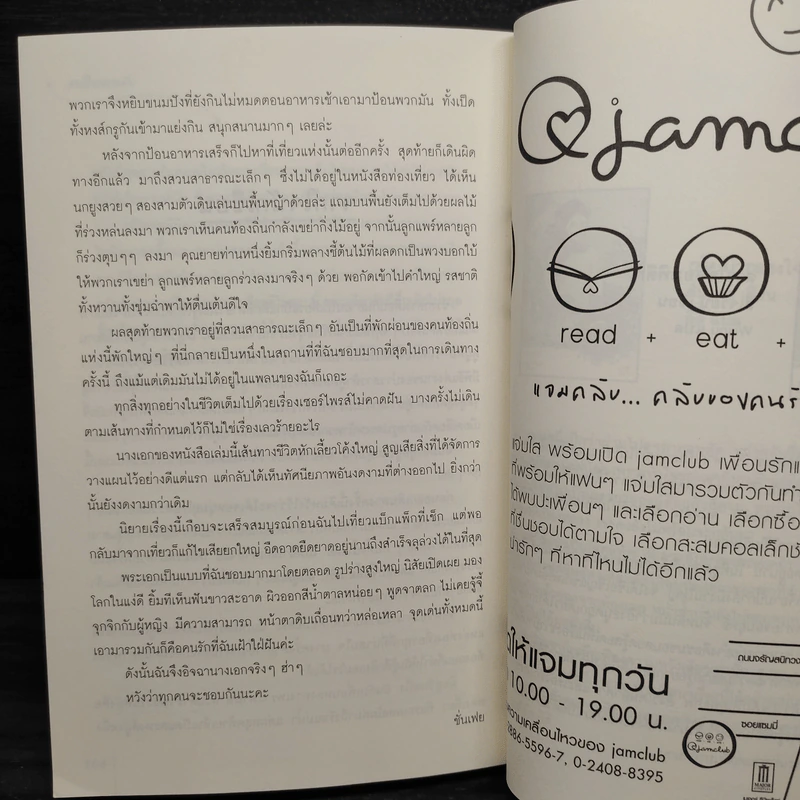 พวกเราจึงหยิบขนมปังที่ยังกินไม่หมดตอนอาหารเช้าเอามาป้อนพวกมัน ทั้งเป็ด
ทั้งหงส์กรูกันเข้ามาแย่งกิน สนุกสนานมากๆ เลยล่ะ
หลังจากป้อนอาหารเสร็จก็ไปหาที่เที่ยวแห่งนั้นต่ออีกครั้ง สุดท้ายก็เดินผิด
ทางอีกแล้ว มาถึงสวนสาธารณะเล็กๆ ซึ่งไม่ได้อยู่ในหนังสือท่องเที่ยว ได้เห็น
นกยูงสวยๆ สองสามตัวเดินเล่นบนพื้นหญ้าด้วยล่ะ แถมบนพื้นยังเต็มไปด้วยผลไม้
ที่ร่วงหล่นลงมา พวกเราเห็นคนท้องถิ่นกำลังเขย่ากิ่งไม้อยู่ จากนั้นลูกแพร์หลายลูก
ก็ร่วงตุบๆๆ ลงมา คุณยายท่านหนึ่งยิ้มกริ่มพลางชี้ต้นไม้ที่ผลดกเป็นพวงบอกใบ้
ให้พวกเราเขย่า ลูกแพร์หลายลูกร่วงลงมาจริงๆ ด้วย พอกัดเข้าไปคำใหญ่ รสชาติ
ทั้งหวานทั้งชุ่มฉ่ำพาให้ตื่นเต้นดีใจ
ผลสุดท้ายพวกเราอยู่ที่สวนสาธารณะเล็กๆ อันเป็นที่พักผ่อนของคนท้องถิ่น
แห่งนี้พักใหญ่ๆ ที่นี่กลายเป็นหนึ่งในสถานที่ที่ฉันชอบมากที่สุดในการเดินทาง
ครั้งนี้ ถึงแม้แต่เดิมมันไม่ได้อยู่ในแพลนของฉันก็เถอะ
ทุกสิ่งทุกอย่างในชีวิตเต็มไปด้วยเรื่องเซอร์ไพรส์ไม่คาดฝัน บางครั้งไม่เดิน
ตามเส้นทางที่กำหนดไว้ก็ไม่ใช่เรื่องเลวร้ายอะไร
นางเอกของหนังสือเล่มนี้เส้นทางชีวิตหักเลี้ยวโค้งใหญ่ สูญเสียสิ่งที่ได้จัดการ
วางแผนไว้อย่างดีแต่แรก แต่กลับได้เห็นทัศนียภาพอันงดงามที่ต่างออกไป ยิ่งกว่า
นั้นยังงดงามกว่าเดิม
นิยายเรื่องนี้เกือบจะเสร็จสมบูรณ์ก่อนฉันไปเที่ยวแบ็กแพ็กที่เช็ก แต่พอ
กลับมาจากเที่ยวก็แก้ไขเสียยกใหญ่ อืดอาดยืดยาดอยู่นานถึงสำเร็จลุล่วงได้ในที่สุด
พระเอกเป็นแบบที่ฉันชอบมากมาโดยตลอด รูปร่างสูงใหญ่ นิสัยเปิดเผย มอง
โลกในแง่ดี ยิ้มทีเห็นฟันขาวสะอาด ผิวออกสีน้ำตาลหน่อยๆ พูดจาตลก ไม่เคยจู้จี้
จุกจิกกับผู้หญิง มีความสามารถ หน้าตาดิบเถื่อนทว่าหล่อเหลา จุดเด่นทั้งหมดนี้
เอามารวมกันก็คือคนรักที่ฉันเฝ้าใฝ่ฝันค่ะ
ดังนั้นฉันจึงอิจฉานางเอกจริงๆ ฮ่าๆ
หวังว่าทุกคนจะชอบกันนะคะ
ซั่นเฟย
@jamc
read + eat +
แจมคลับ... คลับของคนรั
แจ่มใส พร้อมเปิด jamclub เพื่อนรักแ
ที่พร้อมให้แฟนๆ แจ่มใสมารวมตัวกันทำ
ได้พบปะเพื่อนๆ และเลือกอ่าน เลือกซื้อ
ที่ชื่นชอบได้ตามใจ เลือกสะสมคอลเล็กชั
น่ารักๆ ที่หาที่ไหนไม่ได้อีกแล้ว
ให้แจมทุกวัน
10.00 - 19.00 น.
ความเคลื่อนไหวของ jamclub
2886-5596-7, 0-2408-8395
@jamclub
ถนนจรัญสนิทวง
ซอยแซมมี่
MAJOR